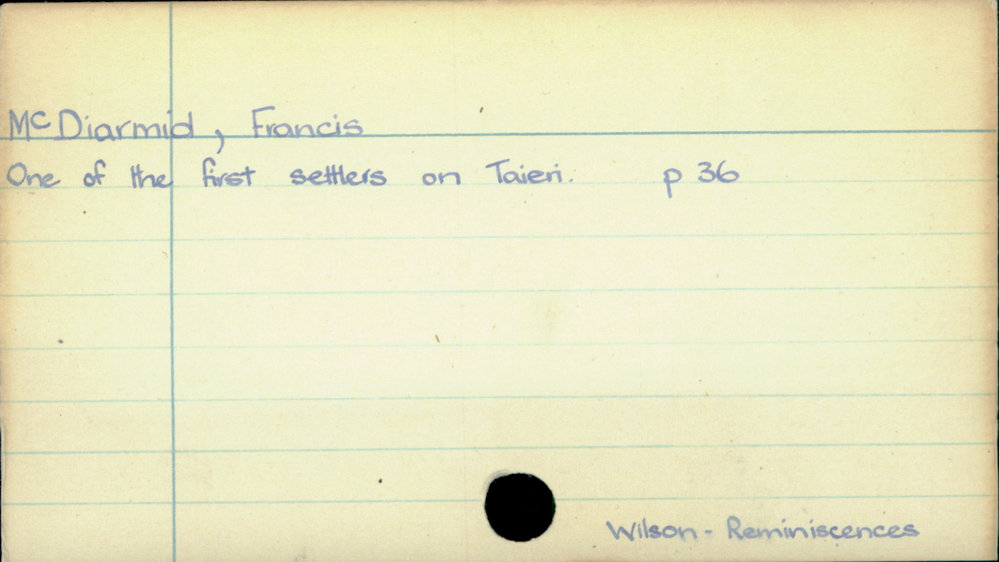 McDiarmid, Francis
One of the first settlers on Taieri. p 36
Wilson - Reminiscences